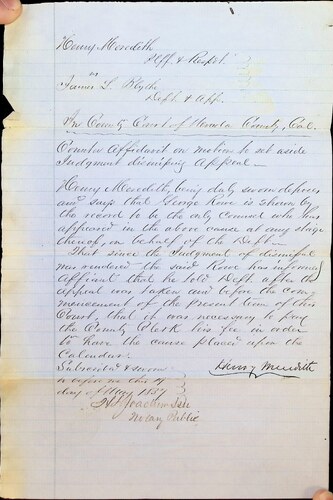 Henry Meredith
Plff & Respt.
vs
James L. Blythe
Deft & App.
In County Court of Nevada County, Cal.
Counter Affidavit on motion to set aside
Judgment dismissing Appeal —
Henry Meredith, being duly sworn deposes
and says that George Rowe is shown by
the record to be the only Counsel who has
appeared in the above cause at any stage
thereof, on behalf of the Deft —
That since the Judgment of dismissal
was rendered the said Rowe has informed
Affiant that he told Deft. after the
appeal was taken and before the com
mencement of the present term of this
Court, that it was necessary to pay
the County Clerk his fee in order
to have the cause placed upon the
Calendar.
Subscribed & sworn
Henry Meredith
to before me this
day of May 1857
Notary Public